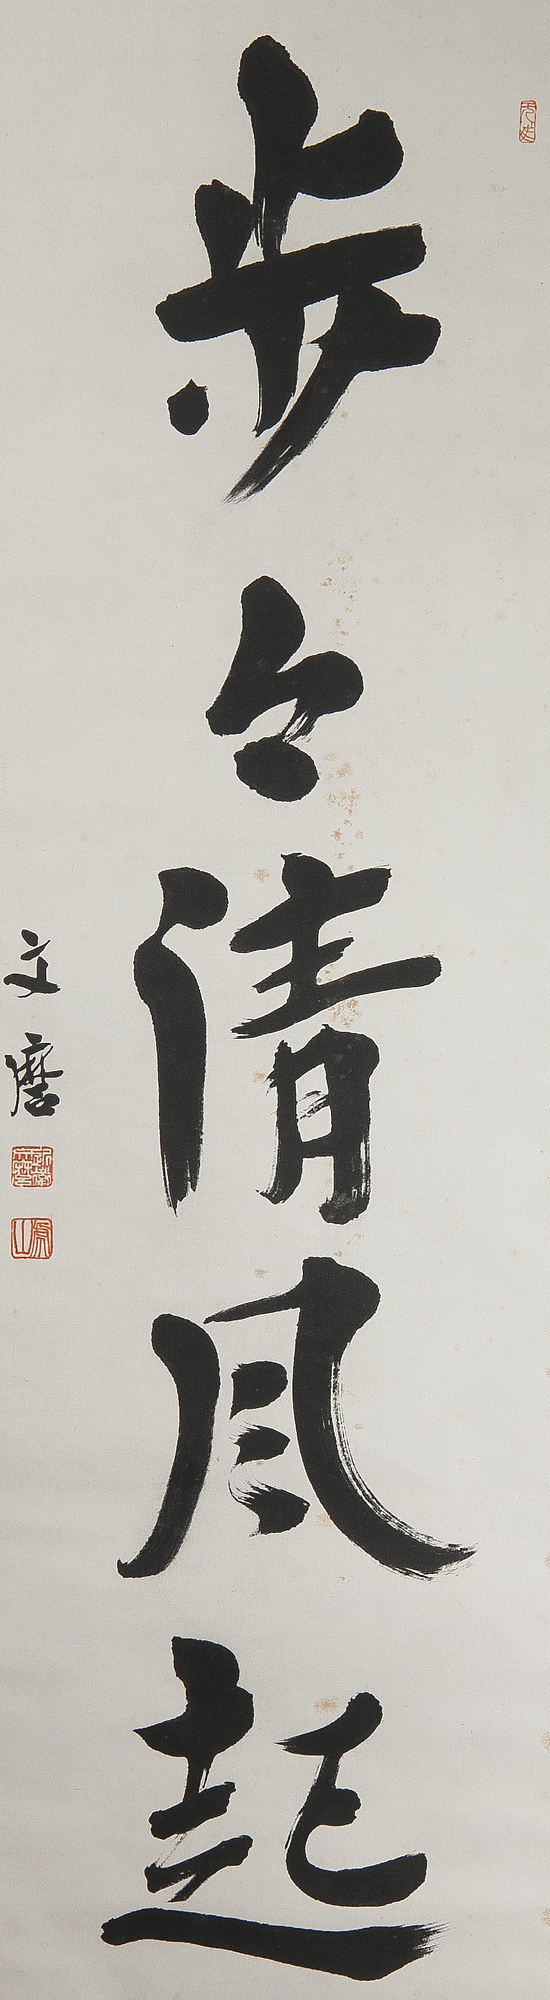 步々清風起
文麿